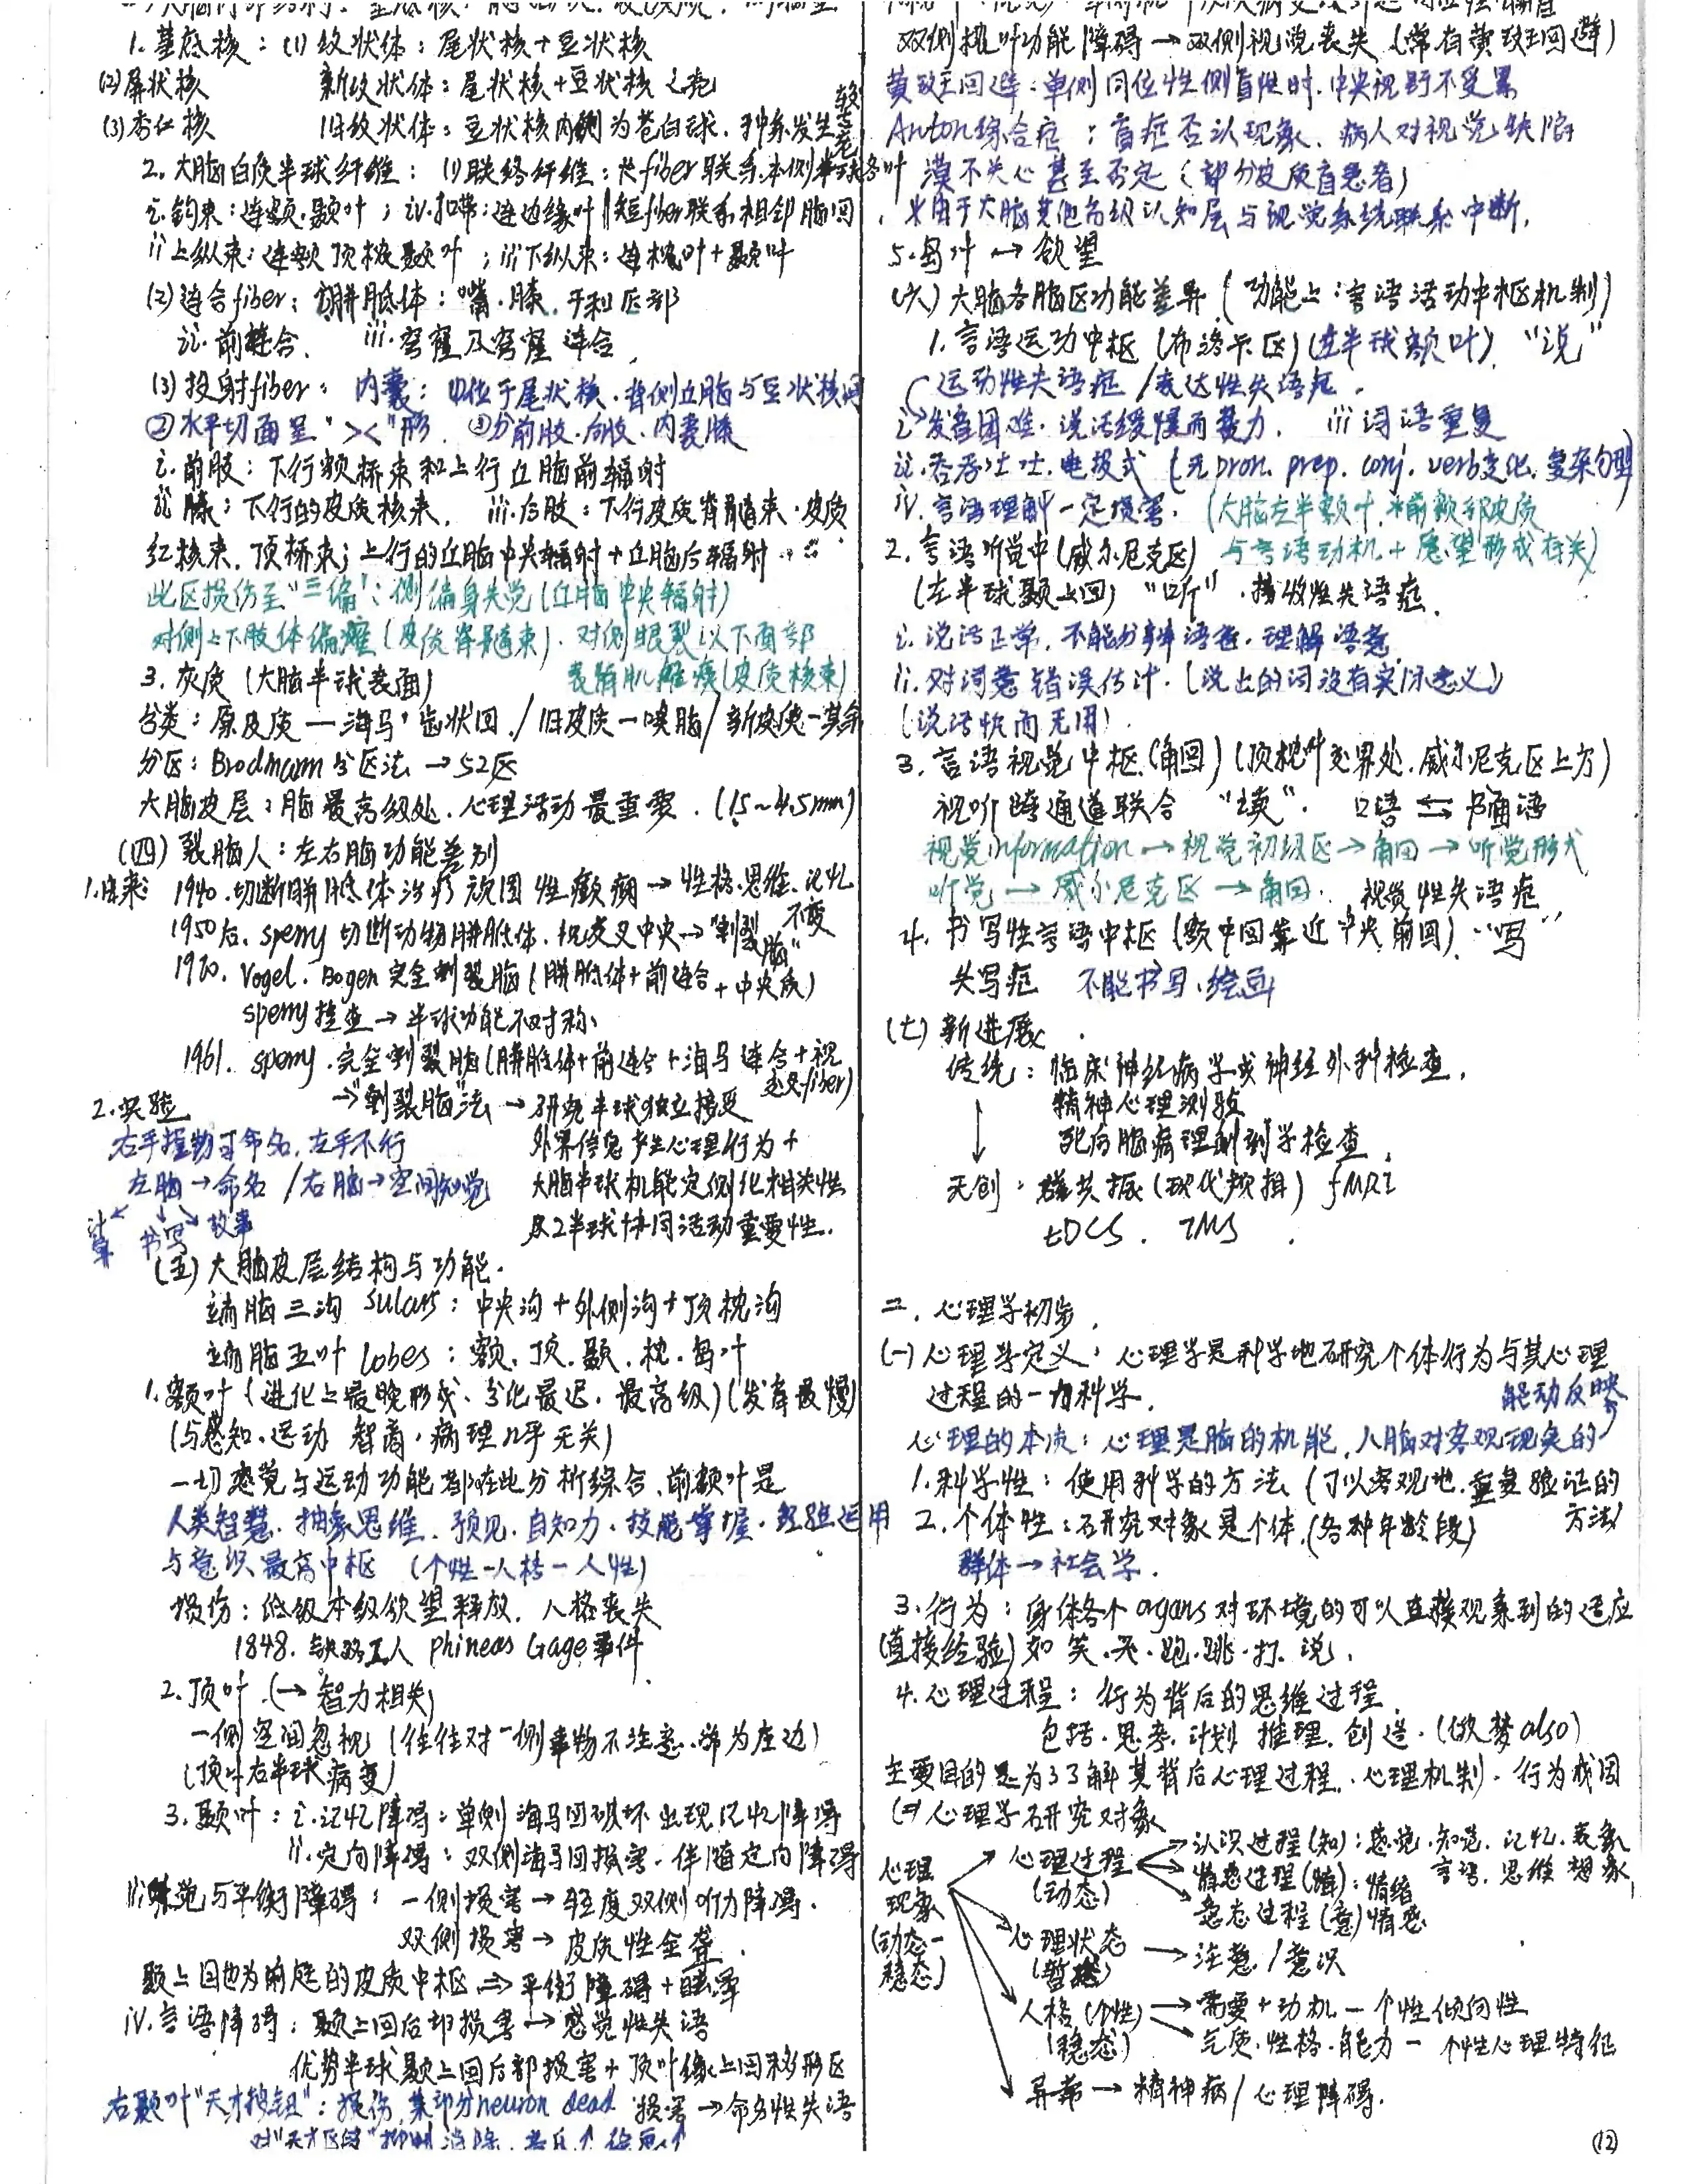 1. 基底核：(1) 纹状体：尾状核+豆状核
(2) 屏状核 新纹状体：尾状核+豆状核之壳
(3) 杏仁核 旧纹状体：豆状核内侧为苍白球，种系发生较老
2. 大脑白质半球纤维：(1)联络纤维：长fiber联系本侧半球各叶
i. 钩束：连额、颞叶；iv. 扣带：连边缘叶 短fiber联系相邻脑回
ii 上纵束：连额顶枕颞叶；iii 下纵束：连枕叶+颞叶
(2) 连合fiber：i 胼胝体：嘴、膝、干和压部
ii. 前连合、 iii. 穹窿及穹窿连合
(3) 投射fiber： 内囊：①位于尾状核、背侧丘脑与豆状核间
②水平切面呈“><”形 ③分前肢、后肢、内囊膝
i. 前肢：下行额桥束和上行丘脑前辐射
ii 膝：下行的皮质核束， iii. 后肢：下行皮质脊髓束、皮质
红核束、顶桥束；上行的丘脑中央辐射+丘脑后辐射
此区损伤至“三偏”：侧偏身失觉(丘脑中央辐射)
对侧上下肢体偏瘫(皮质脊髓束)、对侧眼裂以下面部
表情肌瘫痪(皮质核束)
3. 灰质 (大脑半球表面)
分类：原皮质—海马、齿状回 / 旧皮质—嗅脑 / 新皮质—其余
分区：Brodmann分区法 → 52区
大脑皮层：脑最高级处、心理活动最重要．(1.5~4.5mm)
(四) 裂脑人：左右脑功能差别
1. 由来： 1940. 切断胼胝体治疗顽固性癫痫 → 性格、思维、记忆不变
1950后. sperry 切断动物胼胝体、视交叉中央 → “割裂脑”
1970. Vogel. Bogen 完全割裂脑 (胼胝体+前连合+中央质)
sperry 检查 → 半球功能不对称
1961. sperry. 完全割裂脑 (胼胝体+前连合+海马连合+视交叉fiber)
→“割裂脑”法 → 研究半球独立接受
2. 实验 外界信息产生心理行为+
右手握物可命名，左手不行 大脑半球机能定侧化相关性
左脑→命名 / 右脑→空间知觉 及2半球协同活动重要性．
计算 书写 故事
(五) 大脑皮层结构与功能．
端脑三沟 sulcus：中央沟+外侧沟+顶枕沟
端脑五叶 lobes：额、顶、颞、枕、岛叶
1. 额叶 (进化上最晚形成、分化最迟、最高级)(发育最慢)
(与感知、运动 智商、病理几乎无关)
一切感觉与运动功能都在此分析综合、前额叶是
人类智慧、抽象思维、预见、自知力、技能掌握、经验运用
与意识最高中枢 (个性—人格—人性)
损伤：低级本级欲望释放，人格丧失
1848. 铁路工人 Phineas Gage事件
2. 顶叶 (→ 智力相关)
一侧空间忽视 (往往对一侧事物不注意、常为左边)
(顶叶右半球病变)
3. 颞叶：i. 记忆障碍：单侧海马回破坏出现记忆障碍
ii. 定向障碍：双侧海马回损害，伴随定向障碍
iii. 听觉与平衡障碍：一侧损害→轻度双侧听力障碍．
双侧损害→皮质性全聋．
颞上回也为前庭的皮质中枢 ⇒ 平衡障碍+眩晕
iv. 言语障碍：颞上回后部损害 → 感觉性失语
优势半球颞上回后部损害+顶叶缘上回移形区
损害→命名性失语
右颞叶“天才按钮”：损伤，某部分neuron dead
对“天才区域”抑制消除
双侧枕叶功能障碍→双侧视觉丧失 (常有黄斑回避)
黄斑回避：单侧同位性侧盲性时，中央视野不受累
Anton综合症：盲症否认现象，病人对视觉缺陷
漠不关心甚至否定 (部分皮质盲患者)
由于大脑其他高级认知层与视觉系统联系中断．
5. 岛叶 → 欲望
(六) 大脑各脑区功能差异 (功能上：言语活动中枢机制)
1. 言语运动中枢 (布洛卡区)(左半球额叶) “说”
运动性失语症 / 表达性失语症．
i. 发音困难、说话缓慢而费力． iii 词语重复
ii. 吞吞吐吐、电报式 (无pron. prep. conj. verb变化、复杂句型)
iv. 言语理解一定损害． (大脑左半额叶，*前额部皮质
2. 言语听觉中 (威尔尼克区) 与言语动机+愿望形成有关)
(左半球颞上回) “听”．接收性失语症．
i. 说话正常，不能分辨语音，理解语意
ii. 对词意错误估计．(说出的词没有实际意义)
(说话快而无用)
3. 言语视觉中枢 (角回)(顶枕叶交界处．威尔尼克区上方)
视听跨通道联合 “读”． 口语 ⇆ 书面语
视觉information → 视觉初级区 → 角回 → 听觉形式
听觉 → 威尔尼克区 → 角回． 视觉性失语症
4. 书写性言语中枢 (额中回靠近中央前回)．“写”
失写症 不能书写、绘画
(七) 新进展
传统：临床神经病学或神经外科检查，
精神心理测验
死后脑病理解剖学检查
无创：磁共振 (现代颅摄) fMRI
tDCS． TMS．
二、心理学初步．
(一) 心理学定义：心理学是科学地研究个体行为与其心理
过程的一门科学． 能动反映
心理的本质：心理是脑的机能，人脑对客观现实的
1. 科学性：使用科学的方法 (可以客观地、重复验证的方法)
2. 个体性：研究对象是个体 (各种年龄段)
群体→社会学．
3. 行为：身体各个organs对环境的可以直接观察到的适应
(直接经验) 如笑、哭、跑、跳、打、说．
4. 心理过程：行为背后的思维过程
包括、思考、计划 推理、创造、(做梦also)
主要目的是为了了解其背后心理过程、心理机制、行为成因
(二) 心理学研究对象
心理现象 (动态—稳态)
心理过程 (动态)
认识过程(知)：感觉、知觉、记忆、表象 言语、思维 想象
情感过程(情)：情绪
意志过程(意) 情感
心理状态 (暂态) → 注意 / 意识
人格 (个性) (稳态) → 需要+动机—个性倾向性
气质、性格、能力—个性心理特征
异常 → 精神病 / 心理障碍．
(12)